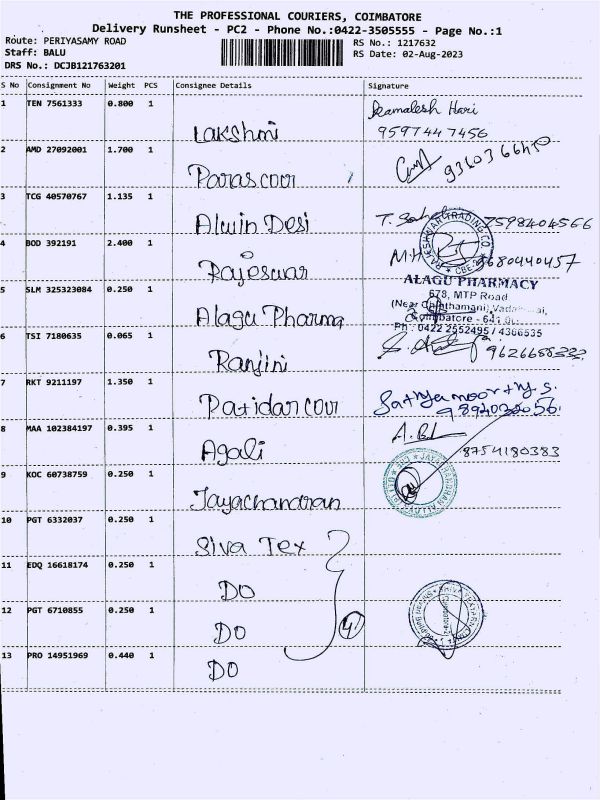 THE PROFESSIONAL COURIERS, COIMBATORE
Delivery Runsheet - PC2 - Phone No.:0422-3505555 - Page No.:1
Route: PERIYASAMY ROAD
Staff: BALU
DRS No.: DCJB121763201
RS No.: 1217632
RS Date: 02-Aug-2023
S No Consignment No Weight PCS Consignee Details Signature
1 TEN 7561333 0.800 1 Lakshmi Kamalesh Hari
9597447456
2 AMD 27092001 1.700 1 Paras cour
3 TCG 40570767 1.135 1 Alwin Desi 7598404566
4 BOD 392191 2.400 1 Rajeswar
5 SLM 325323084 0.250 1 Alagu Pharma
ALAGU PHARMACY
678, MTP Road
Coimbatore
Ph : 0422 2552495 / 4366535
6 TSI 7180635 0.065 1 Ranjini
7 RKT 9211197 1.350 1 Patidar cour Sathyamoorthy.S.
8 MAA 102384197 0.395 1 Agali 8754180383
9 KOC 60738759 0.250 1 Jayachandran
10 PGT 6332037 0.250 1 Siva Tex
11 EDQ 16618174 0.250 1 DO
12 PGT 6710855 0.250 1 DO 4
13 PRO 14951969 0.440 1 DO